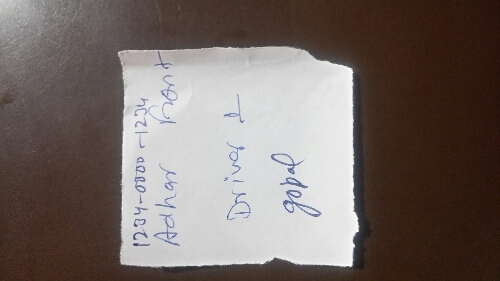 1234-0000-1234
Adhar Front
Driver 1
gopal